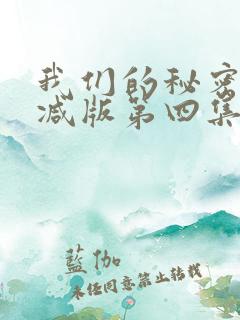 我们的秘密
减版第四集
蓝伽
未经同意禁止转载